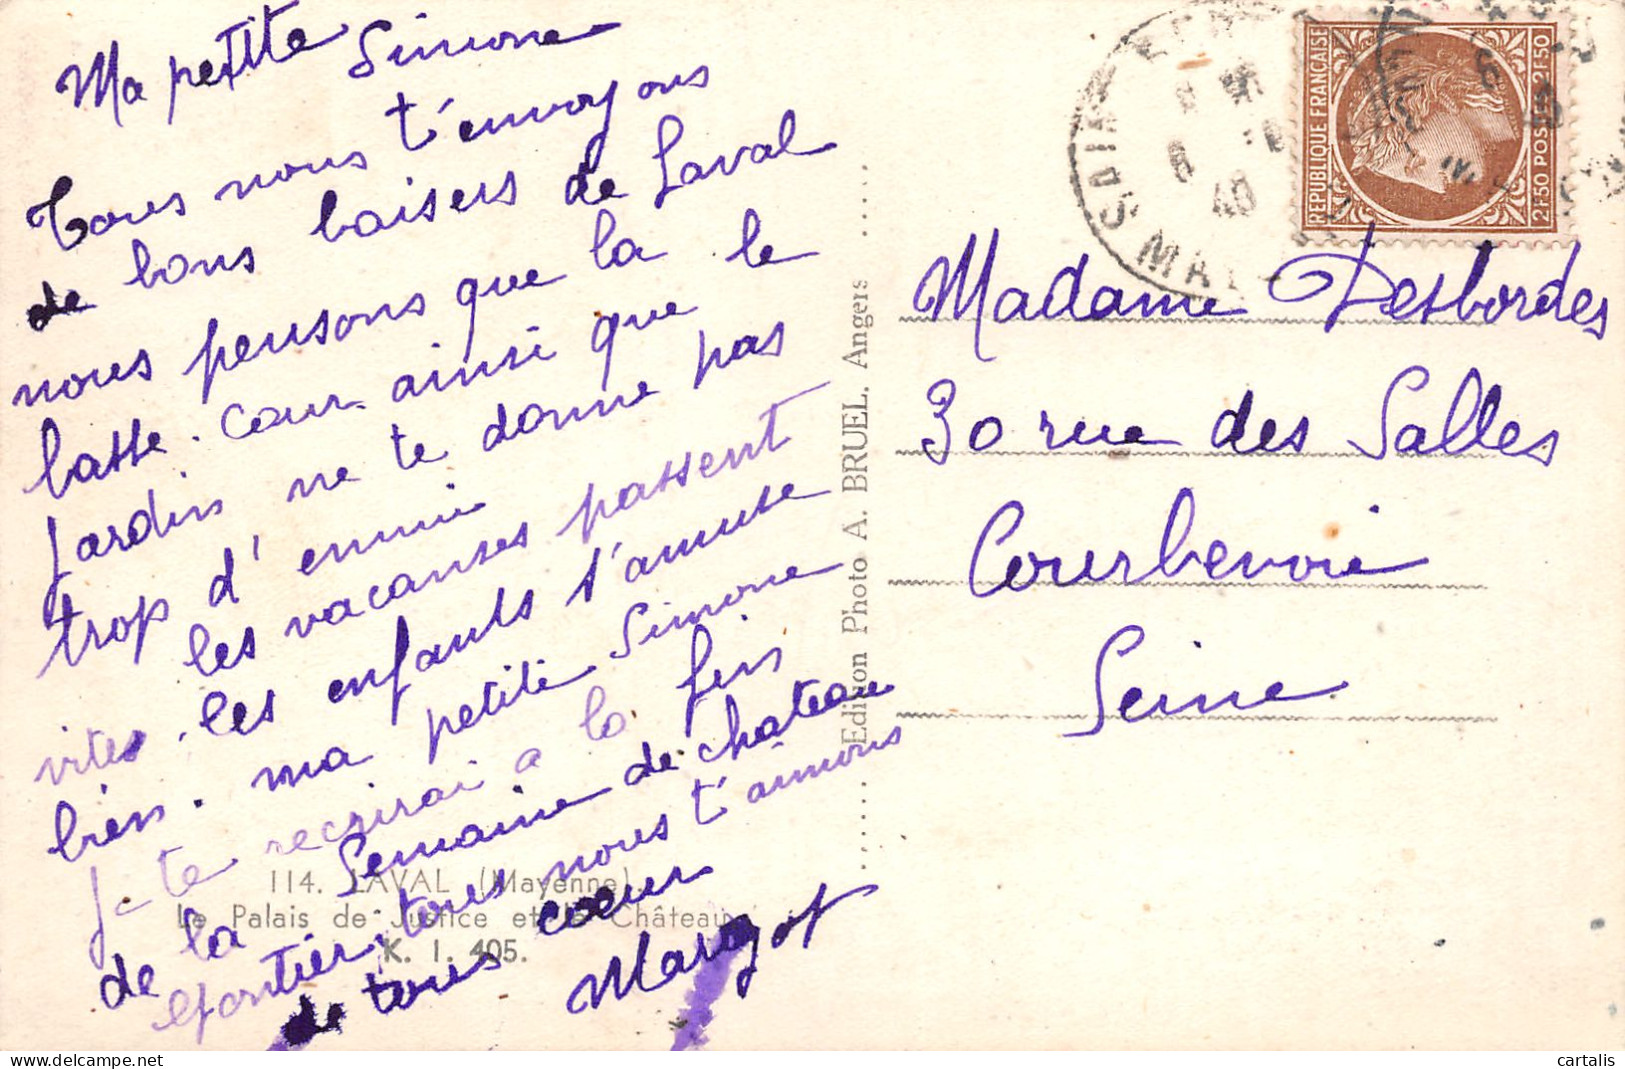 Ma petite Simone
Tous nous t'envoyons
de bons baisers de Laval
nous pensons que la le
basse. cour ainsi que
jardin ne te donne pas
trop d'ennui
les vacanses passent
vites. les enfants s'amuse
bien. ma petite Simone
je te recrirai a la fin
de la Semaine de chateau
gontier, tous nous t'aimons
de tous coeur
Margot
114. LAVAL (Mayenne).
Le Palais de Justice et le Château
K. I. 405.
Edition Photo A. BRUEL. Angers
REPUBLIQUE FRANÇAISE
2F.50 POSTES 2F.50
Madame Desbordes
30 rue des Salles
Courbevoie
Seine
cartalis